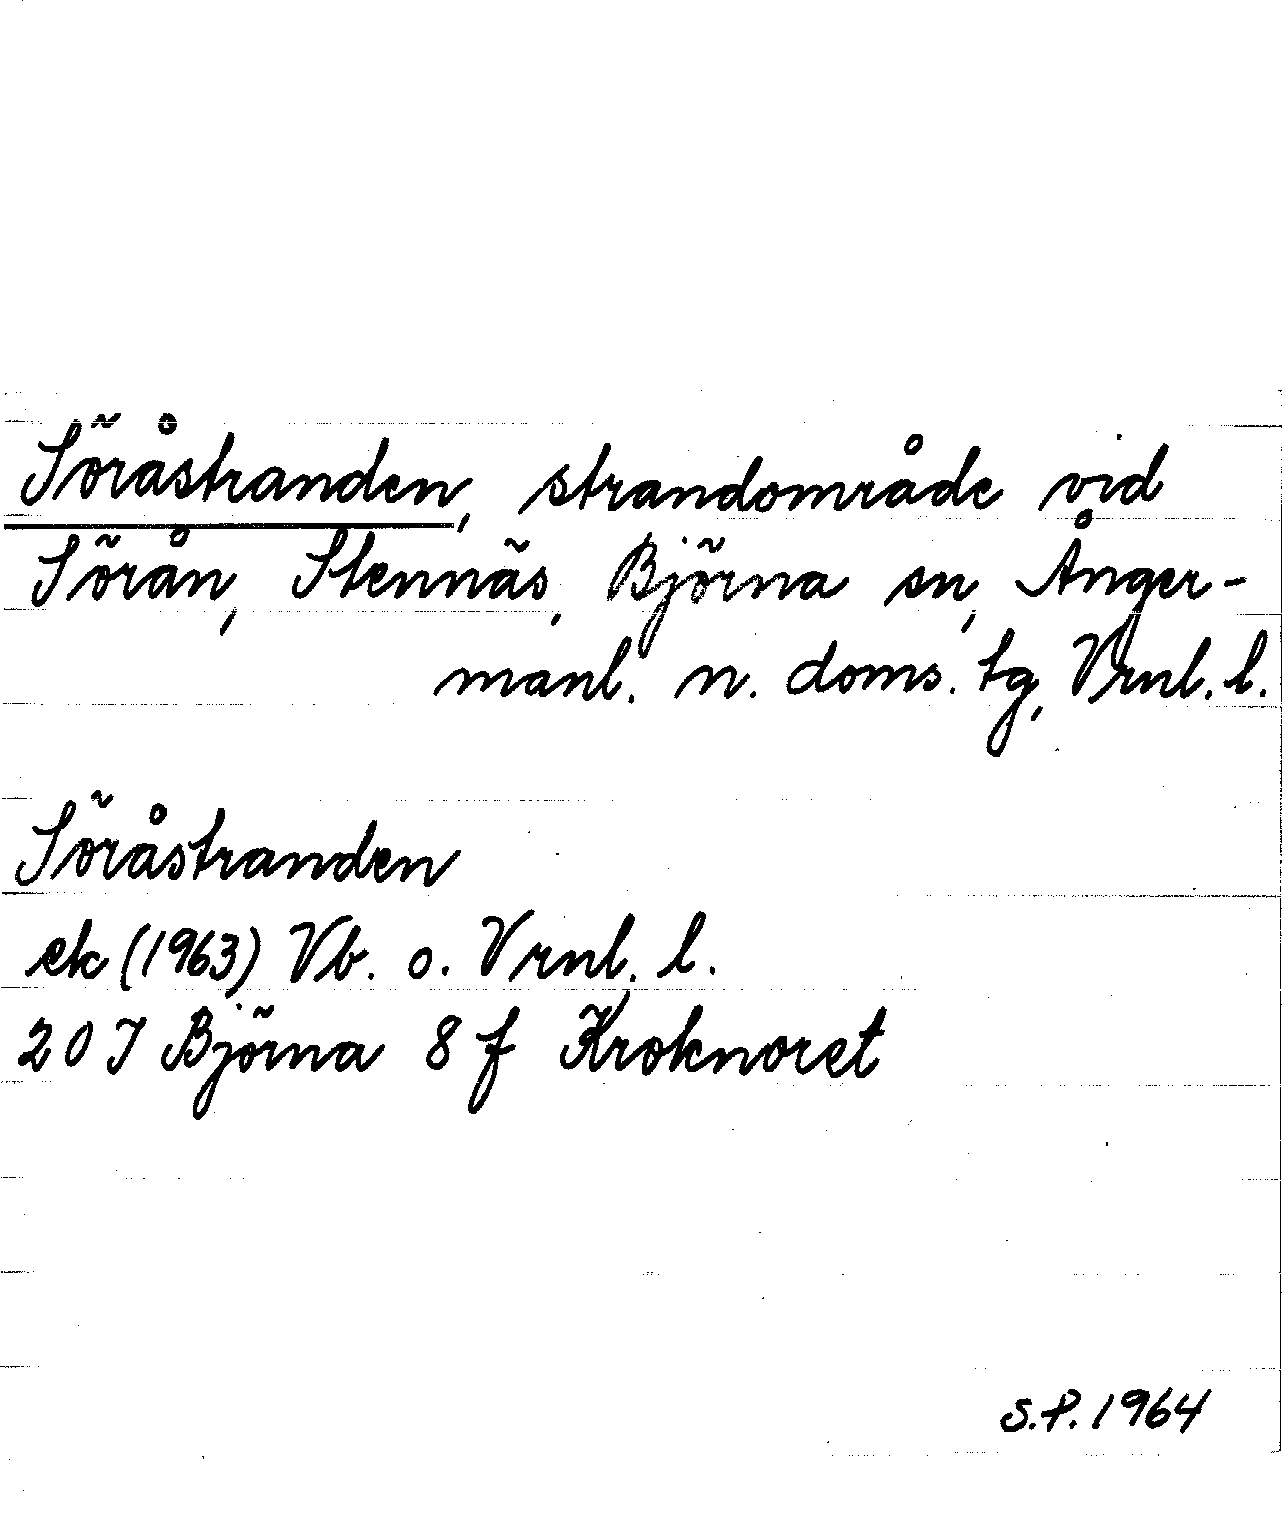 Söråstranden, strandområde vid
Sörån, Stennäs, Björna sn, Ånger-
manl. n. doms. tg, Vrnl. l.
Söråstranden
ek (1963) Vb. o. Vrnl. l.
20 I Björna 8 f Kroknoret
S.P. 1964